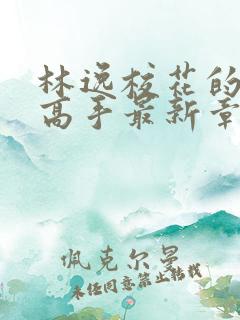 林逸校花的
高手最新章
佩克尔曼
未经同意禁止转载